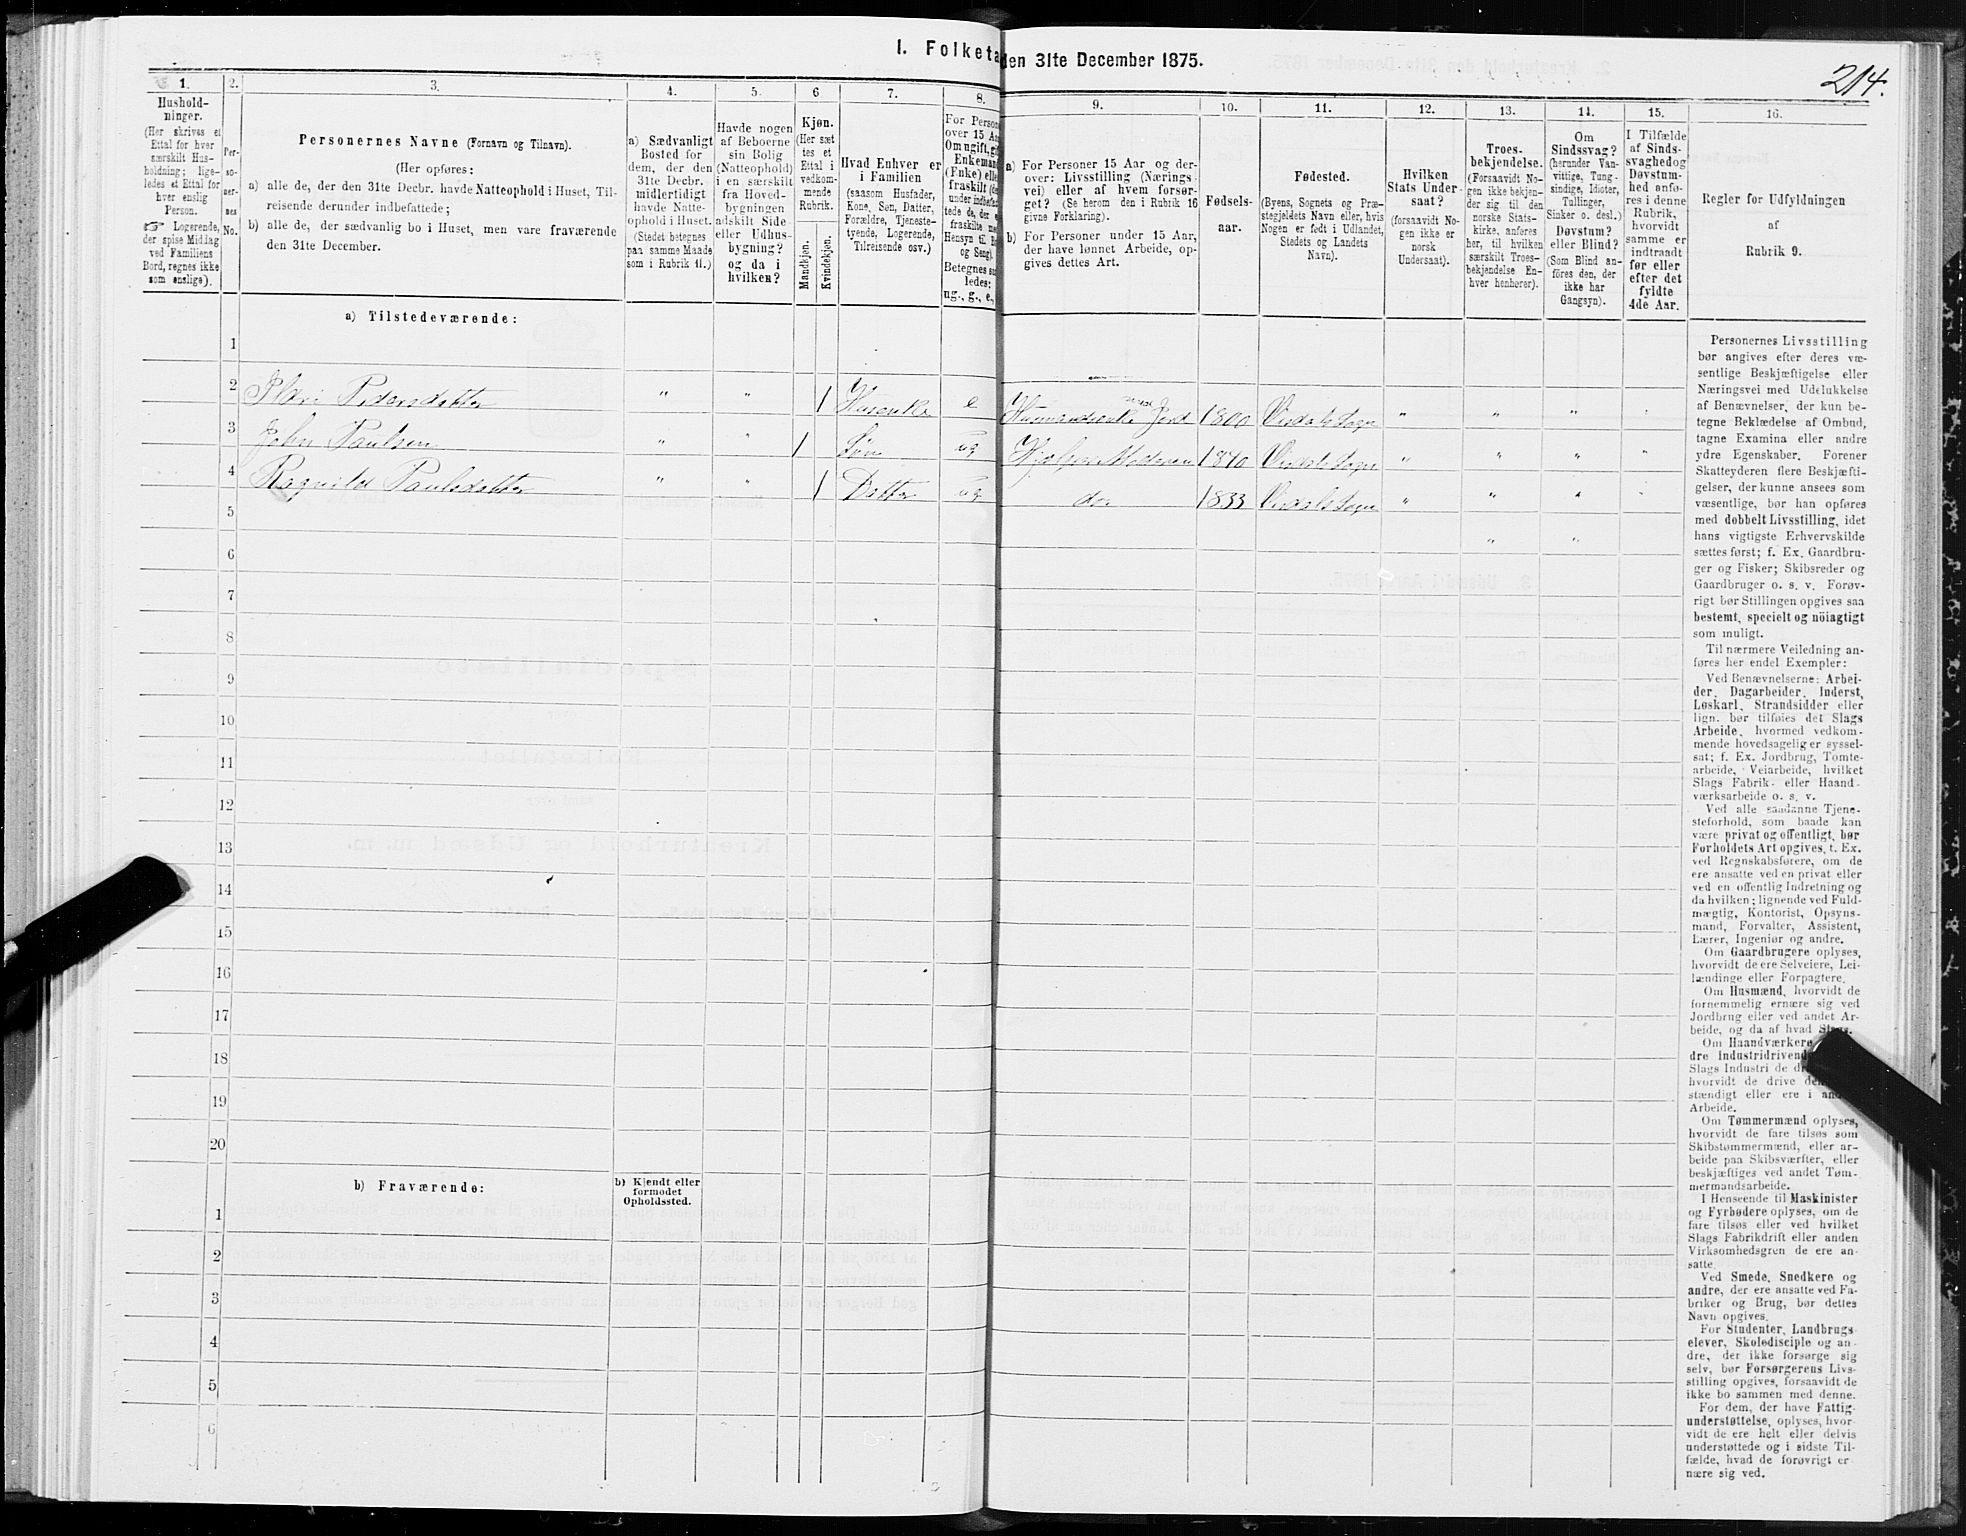 I. Folketa
den 31te December 1875.
214.
1.
Hushold-
ninger.
(Her skrives et
Ettal for hver
særskilt Hus-
holdning; lige-
ledes et Ettal for
hver enslig
Person.
Logerende,
der spise Middag
ved Familiens
Bord, regnes ikke
som enslige).
2.
Per-
so-
ner-
nes
No.
3.
Personernes Navne (Fornavn og Tilnavn).
(Her opføres:
a) alle de, der den 31te Decbr. havde Natteophold i Huset, Til-
reisende derunder indbefattede;
b) alle de, der sædvanlig bo i Huset, men vare fraværende
den 31te December.
4.
a) Sædvanligt
Bosted for
dem, der den
31te Decbr.
midlertidigt
havde Natte-
ophold i Huset.
(Stedet betegnes
paa samme Maade
som i Rubrik 11.)
5.
Havde nogen
af Beboerne
sin Bolig
(Natteophold)
i en særskilt
fra Hoved-
bygningen
adskilt Side
eller Udhus-
bygning?
og da i
hvilken?
6
Kjøn.
(Her sæt
tes et
Ettal i
vedkom-
mende
Rubrik.
Mandkjøn.
Kvindekjøn.
7.
Hvad Enhver er
i Familien
(saasom Husfader,
Kone, Søn, Datter,
Forældre, Tjeneste-
tyende, Logerende,
Tilreisende osv.)
8.
For Persone
over 15 Aa
Om ugift, gi
Enkemand
(Enke) elle
fraskilt (de
under indbefat
tede de, der e
fraskilte med
Hensyn til Bo
og Seng).
Betegnes saa
ledes:
ug., g., e.,
9.
a) For Personer 15 Aar og der-
over: Livsstilling (Nærings-
vei) eller af hvem forsør-
get? (Se herom den i Rubrik 16
givne Forklaring).
b) For Personer under 15 Aar,
der have lønnet Arbeide, op-
gives dettes Art.
10.
Fødsels-
aar.
11.
Fødested.
(Byens, Sognets og Præ-
stegjeldets Navn eller, hvis
Nogen er født i Udlandet,
Stedets og Landets
Navn).
12.
Hvilken
Stats Under-
saat?
(forsaavidt No-
gen ikke er
norsk
Undersaat).
13.
Troes-
bekjendelse.
(Forsaavidt No-
gen ikke bekjen-
der sig til den
norske Stats-
kirke, anføres
her, til hvilken
særskilt Troes-
bekjendelse En-
hver henhører).
14.
Om
Sindssvag?
(herunder Van-
vittige, Tung-
sindige, Idioter,
Tullinger,
Sinker o. desl.)
Døvstum?
eller Blind?
(Som Blind an-
føres den, der
ikke har
Gangsyn).
15.
I Tilfælde
af Sinds-
svaghed og
Døvstum-
hed anfø-
res i denne
Rubrik,
hvorvidt
samme er
indtraadt
før eller
efter det
fyldte
4de Aar.
16.
Regler for Udfyldningen
af
Rubrik 9.
a) Tilstedeværende:
1
2 Pedersdatter " " 1 Husenke e Husmandsenke med Jord 1800 Verdals Sogn " " " "
3 John Paulsen " " 1 Søn ug Hjelper Moderen 1840 Verdals Sogn " " " "
4 Ragnild Paulsdatter " " 1 Datter ug do. 1833 Verdals Sogn " " " "
5 " "
6
7
8
9
10
11
12
13
14
15
16
17
18
19
20
b) Fraværende:
b) Kjendt eller
formodet
Opholdssted.
1
2
3
4
5
6
Personernes Livsstilling
bør angives efter deres væ-
sentlige Beskjæftigelse eller
Næringsvei med Udelukkelse
af Benævnelser, der kun be-
tegne Beklædelse af Ombud,
tagne Examina eller andre
ydre Egenskaber. Forener
Skatteyderen flere Beskjæfti-
gelser, der kunne ansees som
væsentlige, bør han opføres
med dobbelt Livsstilling, idet
hans vigtigste Erhvervskilde
sættes først; f. Ex. Gaardbru-
ger og Fisker; Skibsreder og
Gaardbruger o. s. v. Forøv-
rigt bør Stillingen opgives saa
bestemt, specielt og nöiagtigt
som muligt.
Til nærmere Veiledning an-
føres her endel Exempler:
Ved Benævnelserne: Arbei-
der, Dagarbeider, Inderst,
Løskarl, Strandsidder eller
lign. bør tilføies det Slags
Arbeide, hvormed vedkom-
mende hovedsagelig er syssel-
sat; f. Ex. Jordbrug, Tomte-
arbeide, Veiarbeide, hvilket
Slags Fabrik- eller Haand-
værksarbeide o. s. v.
Ved alle saadanne Tjene-
steforhold, som baade kan
være privat og offentligt, bør
Forholdets Art opgives, f. Ex.
ved Regnskabsførere, om de
ere ansatte ved en privat eller
ved en offentlig Indretning og
da hvilken; lignende ved Fuld-
mægtig, Kontorist, Opsyns-
mand, Forvalter, Assistent,
Lærer, Ingeniør og andre.
Om Gaardbrugere oplyses,
hvorvidt de ere Selveiere, Lei-
lændinge eller Forpagtere.
Om Husmænd, hvorvidt de
fornemmelig ernære sig ved
Jordbrug eller ved andet Ar-
beide, og da af hvad Slags.
Om Haandværkere
dre Industridrivend
Slags Industri de dr
hvorvidt de drive de
stændigt eller ere i an
Arbeide.
Om Tømmermænd oplyses,
hvorvidt de fare tilsøs som
Skibstømmermænd, eller ar-
beide paa Skibsværfter, eller
beskjæftiges ved andet Tøm-
mermandsarbeide.
I Henseende til Maskinister
og Fyrbødere oplyses, om de
fare tilsøs eller ved hvilket
Slags Fabrikdrift eller anden
Virksomhedsgren de ere an-
satte.
Ved Smede, Snedkere og
andre, der ere ansatte ved Fa-
briker og Brug, bør dettes
Navn opgives.
For Studenter, Landbrugs-
elever, Skoledisciple og an-
dre, der ikke forsørge sig
selv, bør Forsørgerens Livs-
stilling opgives, forsaavidt de
ikke bo sammen med denne.
For dem, der have Fattig-
understøttelse, oplyses, hvor-
vidt de ere helt eller delvis
understøttede og i sidste Til-
fælde, hvad de forøvrigt er-
nære sig ved.